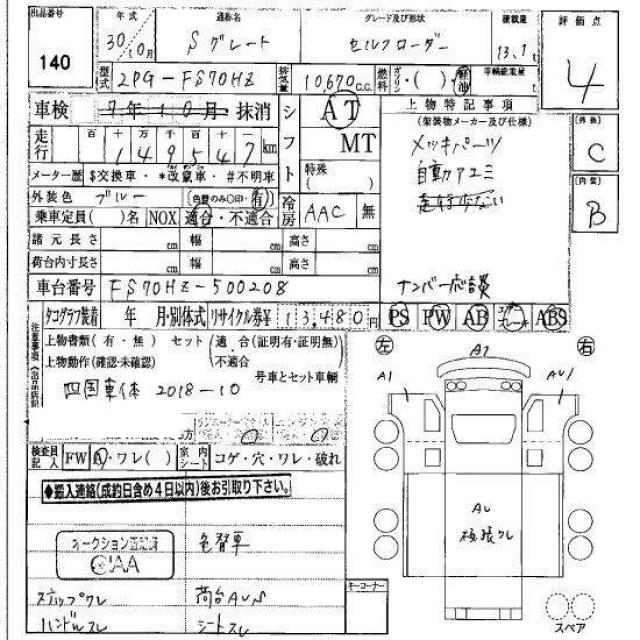 出品番号
140
年式
30年10月
通称名
Sグレート
グレード及び形状
セルフローダー
積載量
13.1t
評価点
4
型式
2PG-FS70HZ
排気量
10,670c.c.
燃料
ガソリン・( )・軽油
車輌総重量 t
車検 7年10月 抹消
走行 百十万千百十一
149547km
メーター歴 $交換車・*改竄車・#不明車
シフト
AT
MT
特殊
( )
外装色 ブルー (色替のみ○印・有)
乗車定員( )名 NOX 適合・不適合
冷房 AAC 無
諸元長さ cm 幅 cm 高さ cm
荷台内寸長さ cm 幅 cm 高さ cm
車台番号 FS70HZ-500208
上物特記事項
(架装物メーカー及び仕様)
メッキパーツ
自動アユミ
ナンバー応談
[外装]
C
[内装]
B
タコグラフ装着 年 月・別体式 リサイクル券¥ 13,480円
PS PW AB ABS
注意事項
上物書類(有・無) セット(適合(証明有・証明無)
上物動作(確認・未確認) 不適合
号車とセット車輌
四国車体 2018-10
検査員記入 FW ・ワレ( ) 室内シート コゲ・穴・ワレ・破れ
◆搬入連絡(成約日含め4日以内)後お引取り下さい。
オークション
CIAA
色替車
ステップワレ 荷台AUS
ハンドルスレ シートスレ
キーコーナー
左
右
A1
A1
AU1
AU
板張ワレ
スペア